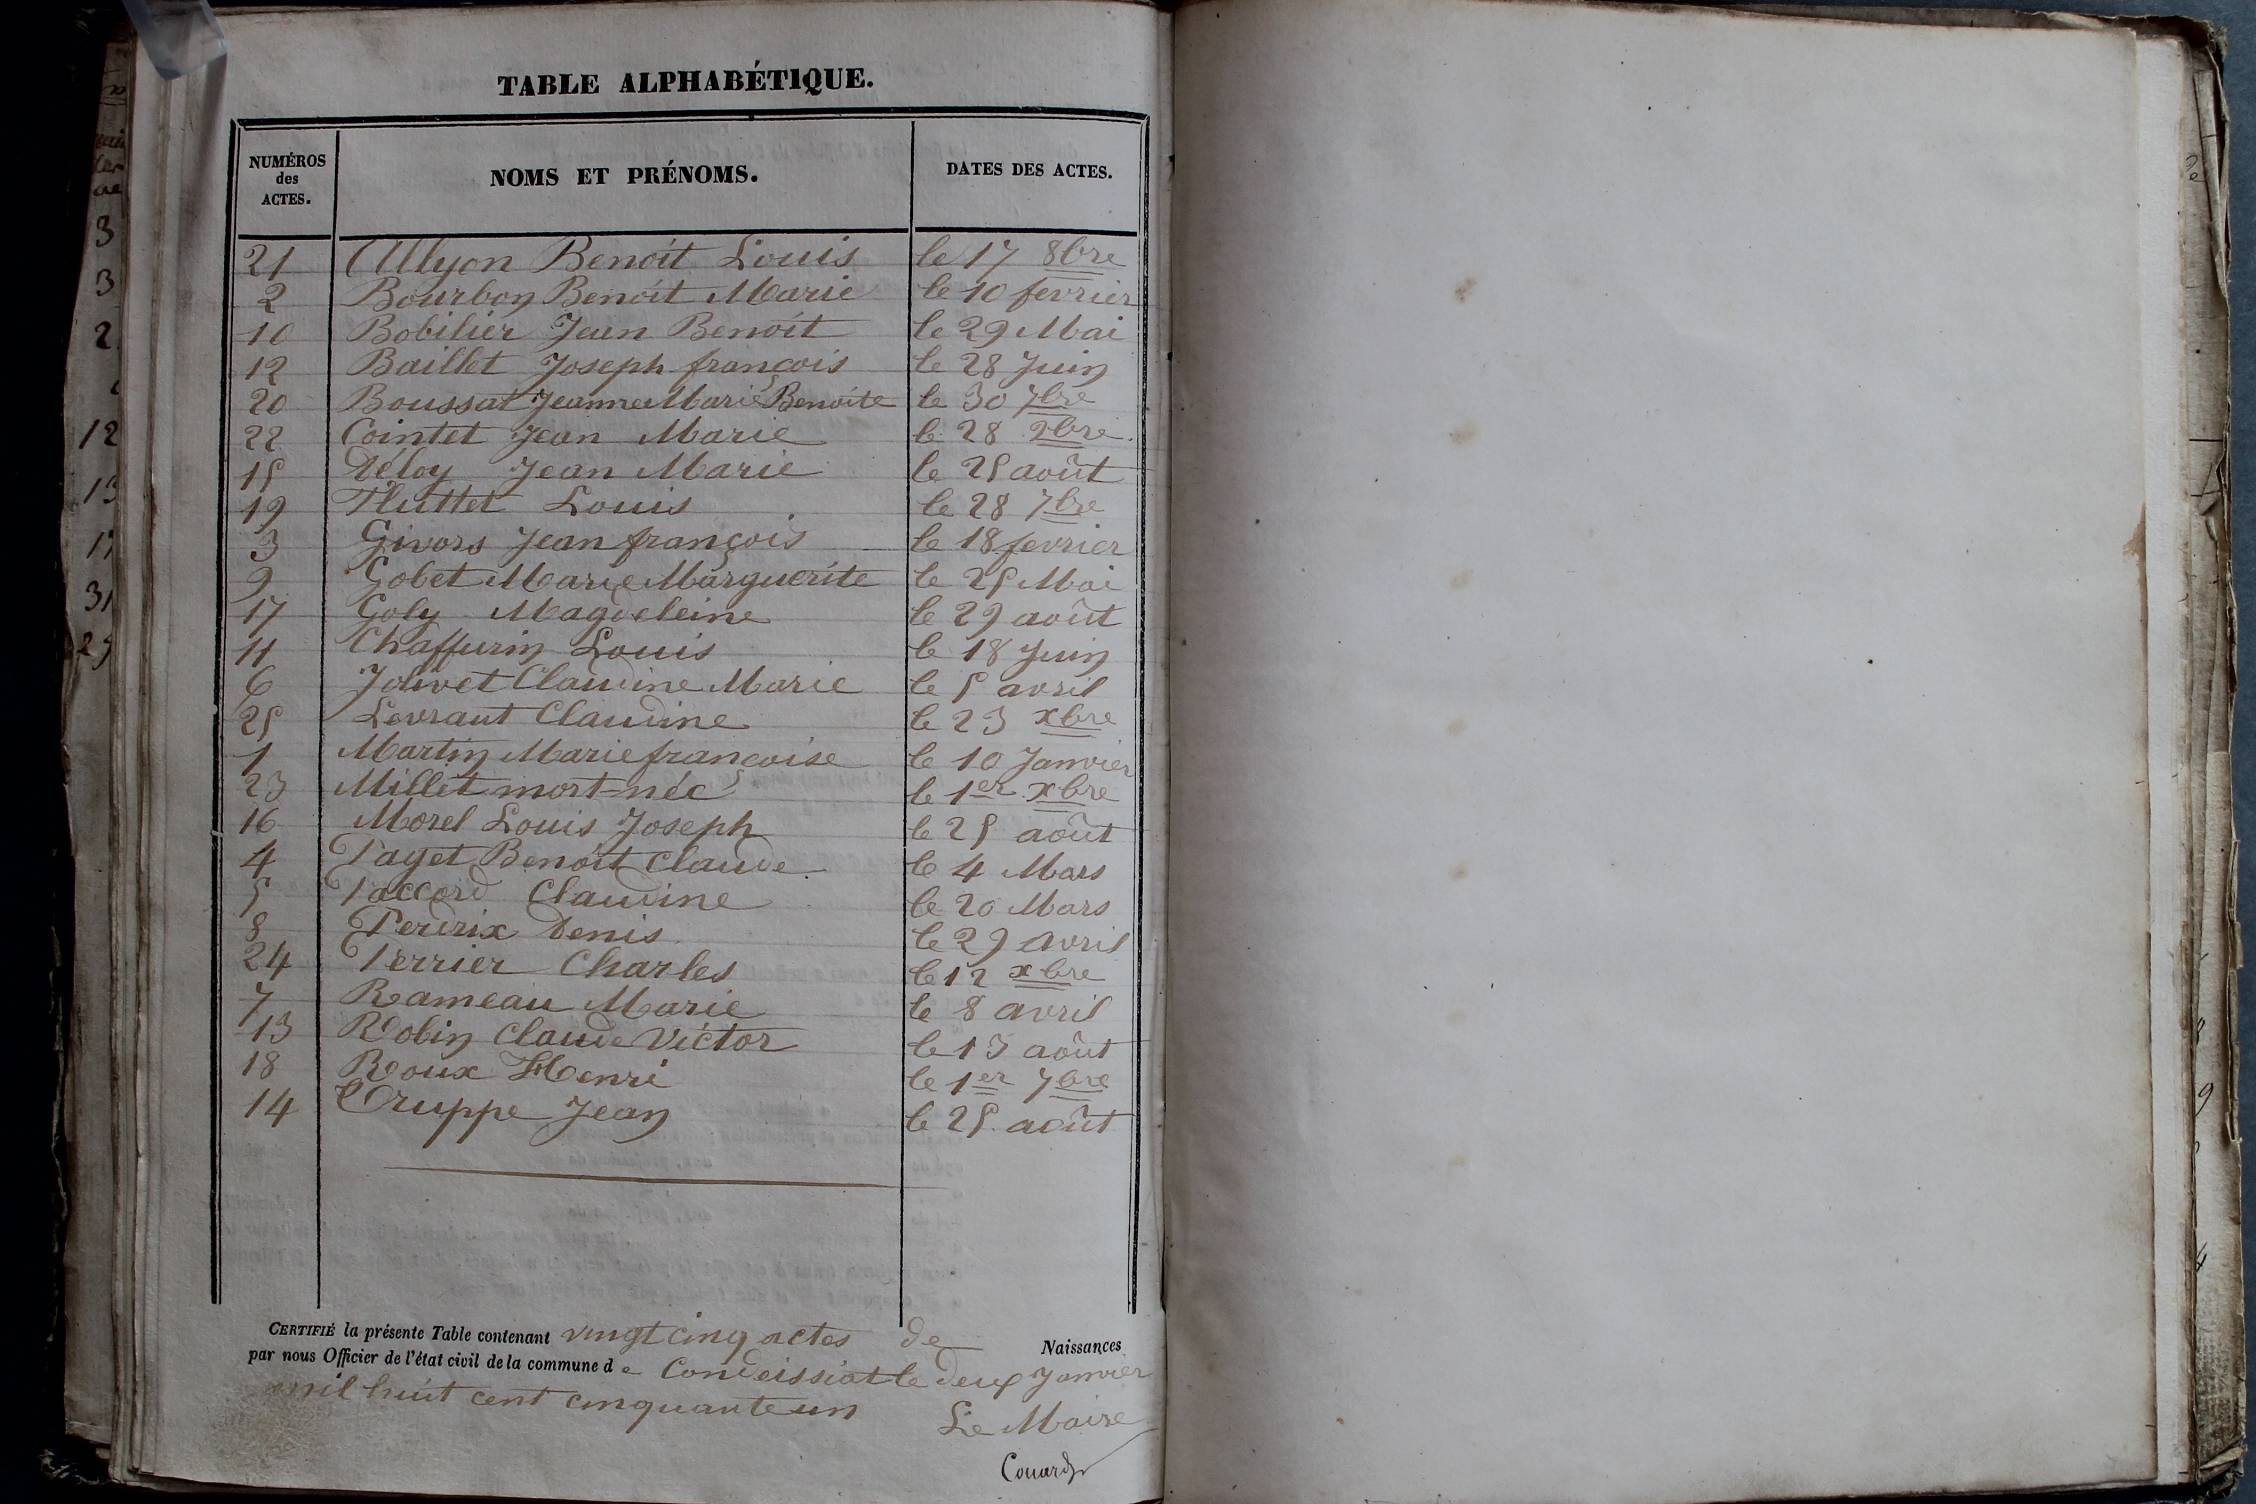 TABLE ALPHABÉTIQUE.
NUMÉROS des ACTES. NOMS ET PRÉNOMS. DATES DES ACTES.
21 Allyon Benoit Louis le 17 8bre
2 Bourbon Benoit Marie le 10 fevrier
10 Bobilier Jean Benoit le 29 Mai
12 Baillet Joseph françois le 28 Juin
20 Boussat Jeanne Marie Benoite le 30 7bre
22 Cointet Jean Marie le 28 9bre
15 Déloy Jean Marie le 25 août
19 Fluttet Louis le 28 7bre
3 Givors Jean françois le 18 fevrier
9 Gobet Marie Marguerite le 25 Mai
17 Goly Magdeleine le 29 août
11 Chaffurin Louis le 18 Juin
6 Jolivet Claudine Marie le 5 avril
25 Levraut Claudine le 23 xbre
1 Martin Marie françoise le 10 Janvier
23 Millet mort-née le 1er xbre
16 Morel Louis Joseph le 25 août
4 Paget Benoit Claude le 4 Mars
5 Paccord Claudine le 20 Mars
8 Perdrix Denis le 29 avril
24 Perrier Charles le 12 xbre
7 Rameau Marie le 8 avril
13 Robin Claude Victor le 13 août
18 Roux Henri le 1er 7bre
14 Truppe Jean le 25 août
CERTIFIÉ la présente Table contenant vingt cinq actes de Naissances
par nous Officier de l'état civil de la commune de Condeissiat le deux Janvier
mil huit cent cinquante un
Le Maire
3
3
2
12
13
17
31